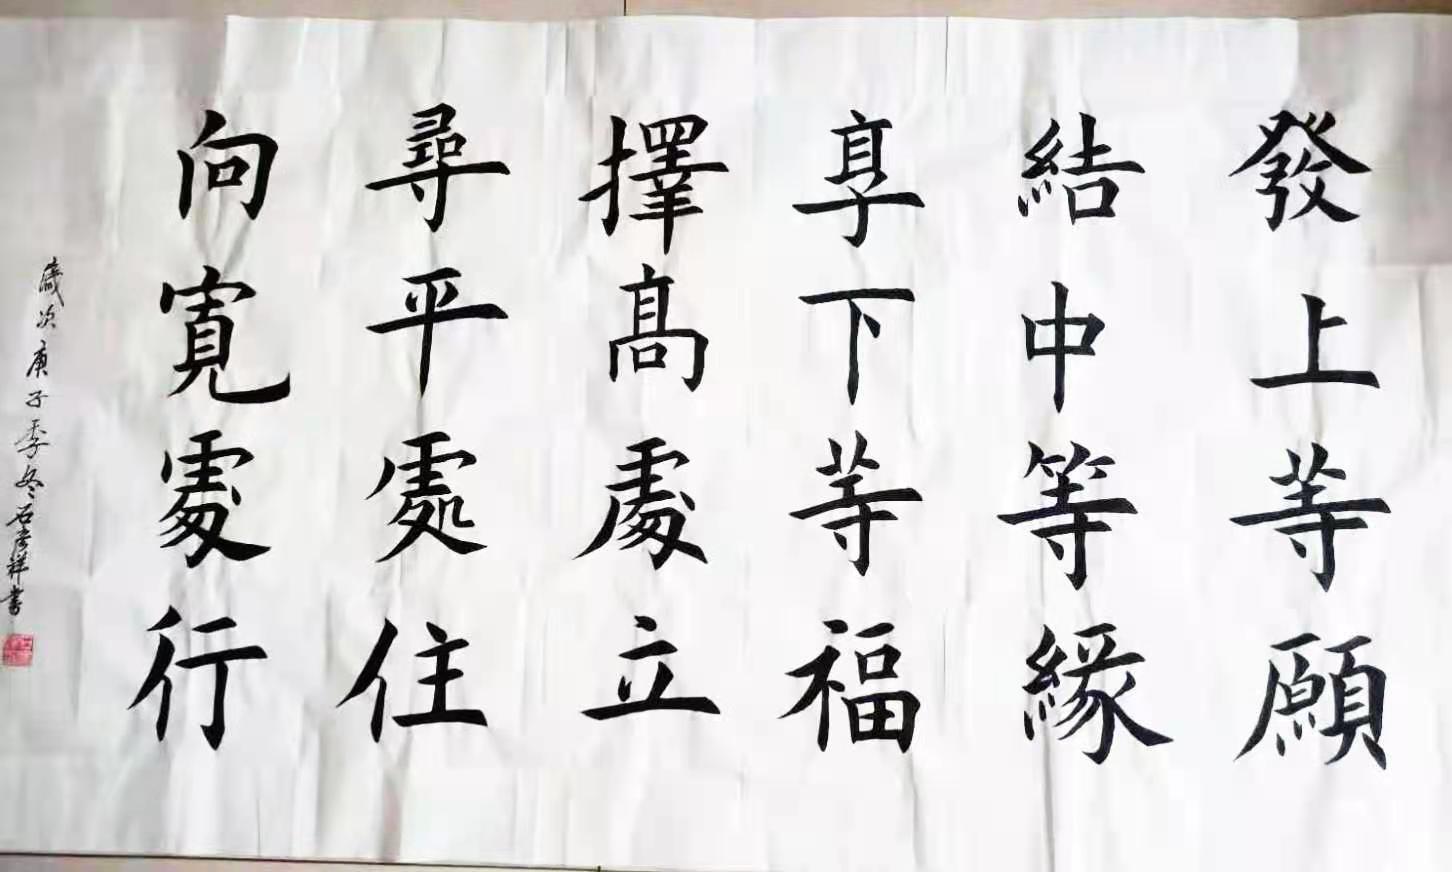 發上等願
結中等緣
享下等福
擇高處立
尋平處住
向寬處行
歲次庚子季冬石孝祥書